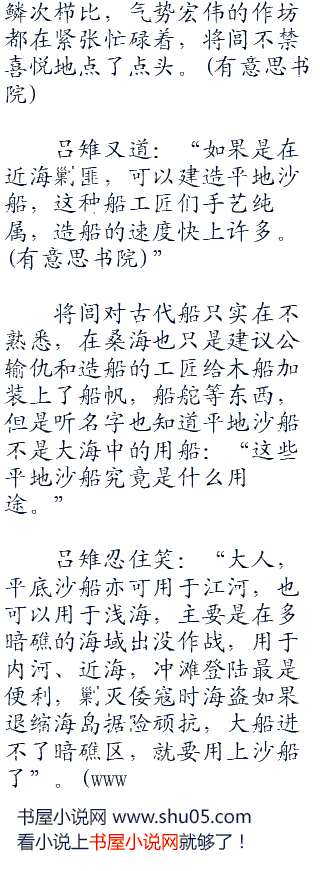 鳞次栉比，气势宏伟的作坊
都在紧张忙碌着，将闾不禁
喜悦地点了点头。(有意思书
院)
吕雉又道：“如果是在
近海剿匪，可以建造平地沙
船，这种船工匠们手艺纯
属，造船的速度快上许多。
(有意思书院)”
将闾对古代船只实在不
熟悉，在桑海也只是建议公
输仇和造船的工匠给木船加
装上了船帆，船舵等东西，
但是听名字也知道平地沙船
不是大海中的用船：“这些
平地沙船究竟是什么用
途。”
吕雉忍住笑：“大人，
平底沙船亦可用于江河，也
可以用于浅海，主要是在多
暗礁的海域出没作战，用于
内河、近海，冲滩登陆最是
便利，剿灭倭寇时海盗如果
退缩海岛据险顽抗，大船进
不了暗礁区，就要用上沙船
了”。(www
书屋小说网 www.shu05.com
看小说上书屋小说网就够了！